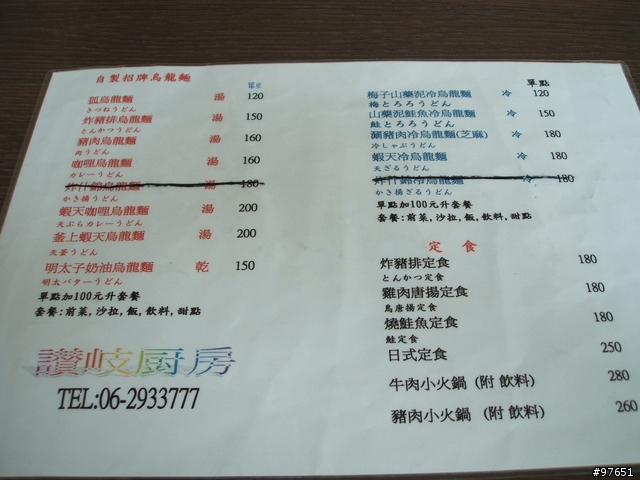 自製招牌烏龍麵
單點
狐烏龍麵 湯 120
きつねうどん
炸豬排烏龍麵 湯 150
とんかつうどん
豬肉烏龍麵 湯 160
肉うどん
咖哩烏龍麵 湯 160
カレーうどん
炸什錦烏龍麵 湯 180
かき揚うどん
蝦天咖哩烏龍麵 湯 200
天ぷらカレーうどん
釜上蝦天烏龍麵 湯 200
天釜うどん
明太子奶油烏龍麵 乾 150
明太バターうどん
單點加100元升套餐
套餐:前菜,沙拉,飯,飲料,甜點
讃岐厨房
TEL:06-2933777
單點
梅子山藥泥冷烏龍麵 冷 120
梅とろろうどん
山藥泥鮭魚冷烏龍麵 冷 150
鮭とろろうどん
涮豬肉冷烏龍麵(芝麻) 冷 180
冷しゃぶうどん
蝦天冷烏龍麵 冷 180
天ざるうどん
炸什錦冷烏龍麵 冷 180
かき揚ざるうどん
單點加100元升套餐
套餐:前菜,沙拉,飯,飲料,甜點
定食
炸豬排定食 180
とんかつ定食
雞肉唐揚定食 180
鳥唐揚定食
燒鮭魚定食 180
鮭定食
日式定食 250
牛肉小火鍋 (附 飲料) 280
豬肉小火鍋 (附 飲料) 260
#97651